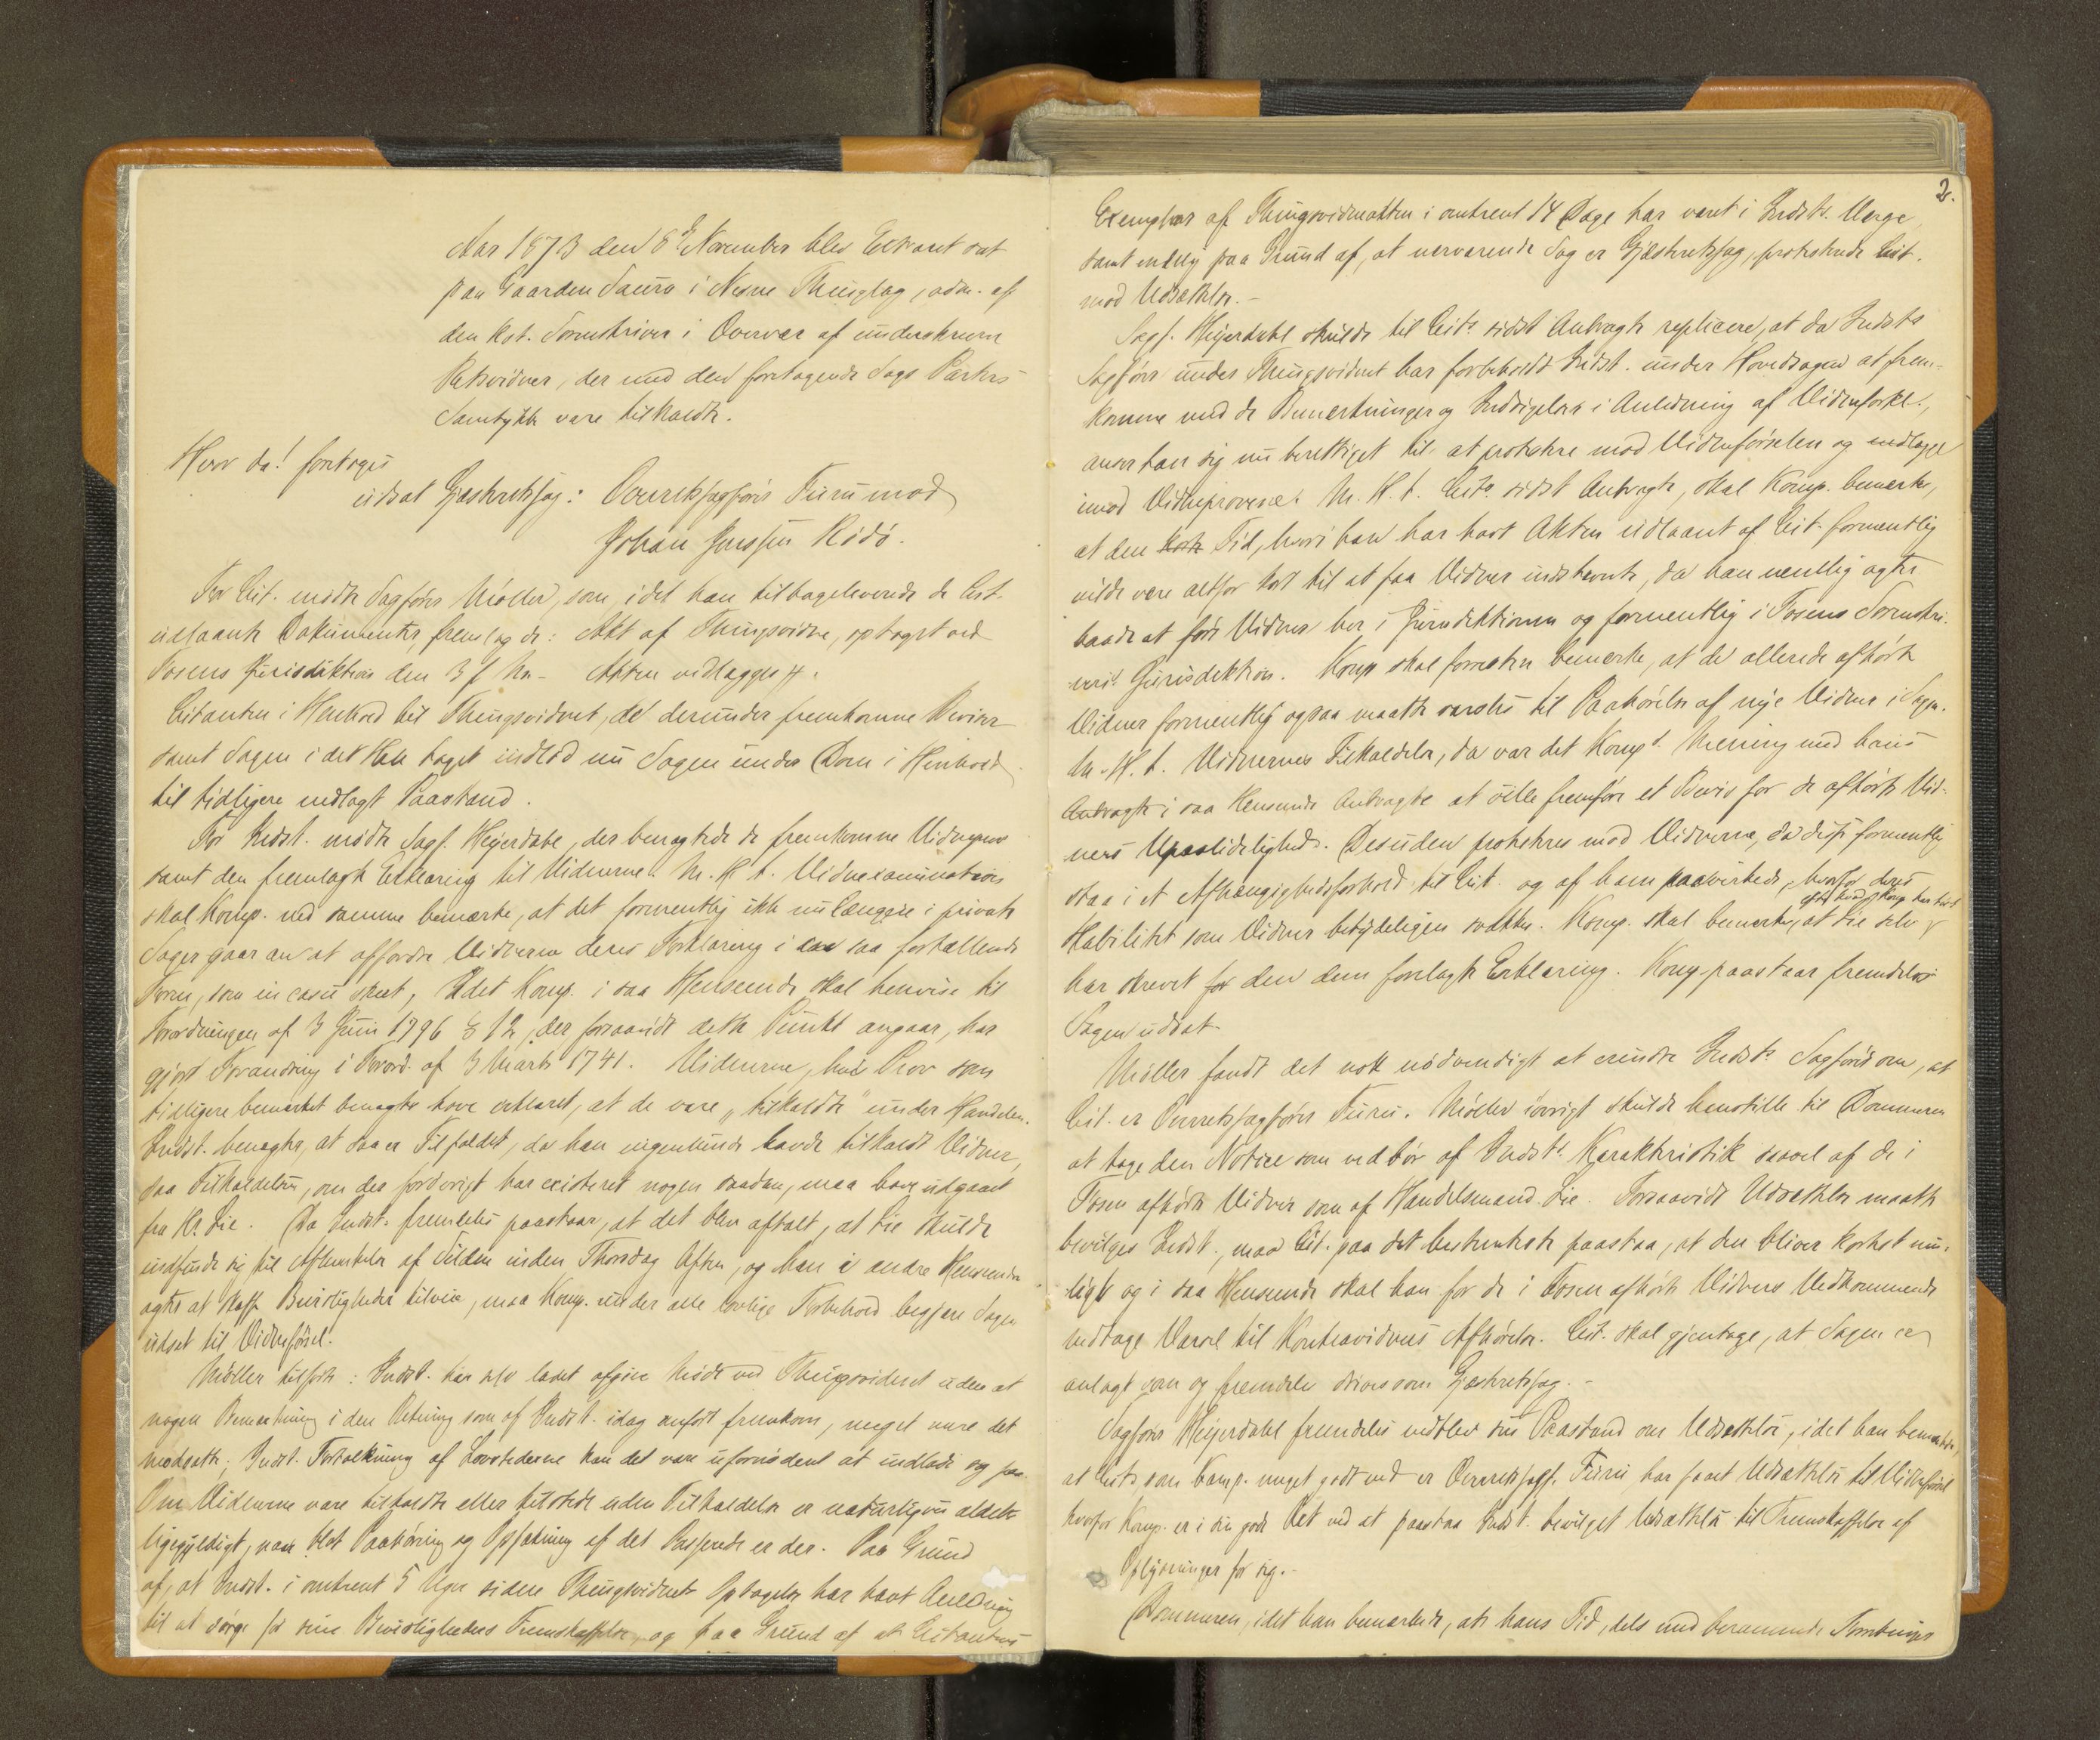 Aar 1873 den 8de November blev Extraret sat
paa Gaarden Saura i Nesne Thinglag, adm. af
den kst. Sorenskriver i Overvær af underskrevne
Retsvidner, der med den foretagende Sags Parters
Samtykke vare tilkaldte.
Hvor da! foretoges
udsat Gjæsteretssag: Overretssagfører Furu mod
Johan Jenssen Rödö.
For Cit. mödte Sagförer Möller, som, idet han tilbageleverede de Cit.
udlaante Dokumenter, fremlagde: Akt af Thingsvidne, optaget ved
Fosens Jurisdiktion den 3 f. M. - Akten vedlægges.
Citanten i Henhold til Thingsvidnet, de derunder fremkomne Beviser
samt Sagen i det Hele taget indlod nu Sagen under Dom i Henhold
til tidligere nedlagt Paastand.
For Indst. mödte Sagf. Heyerdahl, der benægtede de fremkomne Vidneprov
samt den fremlagte Erklæring til Vidnerne. M. H. t. Vidneexaminationen
skal Komp. ved samme bemærke, at det formentlig ikke nu længere i private
Sager gaar an at affordre Vidnerne deres Forklaring i saa fortællende
Form, som in casu skeet, idet Komp. i saa Henseende skal henvise til
Forordningen af 3 Juni 1796 § 12, der forsaavidt dette Punkt angaar, har
gjort Forandring i Forord. af 3 Marts 1741. Vidnerne, hvis Prov som
tidligere bemærket benægtes have erklæret, at de vare "tilkaldte" under Handelen.
Indst. benægter, at saa er Tilfældet, da han ingenlunde havde tilkaldt Vidner,
saa Tilkaldelsen, om der forövrigt har existeret nogen saadan, maa have udgaaet
fra Hr. Lie. Da Indst. fremdeles paastaar, at det blev aftalt, at Lie skulde
indfinde sig til Afhentelse af Silden inden Thorsdag Aften, og han i andre Henseender
agter at skaffe Bevisligheder tilveie, maa Komp. under alle lovlige Forbehold begjære Sagen
udsat til Vidneförsel.
Möller tilföiede: Indst. har selv ladet afgive Möde ved Thingsvidnet uden at
nogen Bemærkning i den Retning som af Indst. idag anfört fremkom, meget mere det
modsatte; Indst. Fortolkning af Lovstederne kan det være ufornödent at indlade sig paa.
Om Vidnerne vare tilkaldte eller tilstede uden Tilkaldelse er naturligvis aldeles
ligegyldigt, naar blot Paahöring og Opfatning af det Passerede er der. Paa Grund
af, at Indst. i omtrent 5 Uger siden Thingsvidnets Optagelse har havt Anledning
til at sörge for sine Bevisligheders Fremskaffelse, og paa Grund af at Citantens
2.
Exemplar af Thingsvidneakten i omtrent 14 Dage har været i Indsts. Værge,
samt endelig paa Grund af, at nærværende Sag er Gjæsteretssag, protesterede Cit.
mod Udsættelse. -
Sagf. Heyerdahl skulde til Cits sidste Andragte replicere, at da Indsts
Sagförer under Thingsvidnet har forbeholdt Indst. under Hovedsagen at frem-
komme med de Bemærkninger og Indsigelser i Anledning af Vidneforkl.,
anser han sig nu berettiget til at protestere mod Vidneförselen og nedlægge
imod Vidneprovene. M. H. t. Cits sidste Andragte, skal Komp. bemærke,
at den korte Tid, hvori han har havt Akten udlaant af Cit. formentlig
vilde være altfor kort til at faa Vidner indstevnte, da han nemlig agter
baade at före Vidner her i Jurisdiktionen og formentlig i Fosens Sorenskri-
veris Jurisdiktion. Komp. skal forresten bemærke, at de allerede afhörte
Vidner formentlig ogsaa maatte varsles til Paahörelse af nye Vidner i Sagen.
M. H. t. Vidnernes Tilkaldelse, da var det Komps. Mening med hans
Andragte i saa Henseende Andragte at ville fremföre et Bevis for de afhörte Vid-
ners Upaalidelighed. Desuden protesteres mod Vidnerne, da disse formentlig
staa i et Afhængighedsforhold til Cit. og af ham paavirkede, hvorfor deres
efter hvad Komp. har hört
Habilitet som Vidner betydeligen svækkes. Komp. skal bemærke, at Lie selv
har skrevet for dem den forelagte Erklæring. Komp. paastaar fremdeles
Sagen udsat.
Möller fandt det nok nödvendigt at erindre Indsts. Sagförer om, at
Cit. er Overretssagförer Furu. Möller iövrigt skulde henstille til Dommeren
at tage den Notice som ved bör af Indsts. Karakteristik saavel af de i
Fosen afhörte Vidner som af Handelsmand Lie. Forsaavidt Udsættelse maatte
bevilges Indst., maa Cit. paa det bestemteste paastaa, at den bliver kortest mu-
ligt og i saa Henseende skal han for de i Fosen afhörte Vidners Vedkommende
vedtage Varsel til Kontravidners Afhörelse. Cit. skal gjentage, at Sagen er
anlagt som og fremdeles drives som Gjæsteretssag. -
Sagförer Heyerdahl fremdeles vedblev sin Paastand om Udsættelse, idet han bemærkede,
at Cits. som Komp. meget godt ved er Overretssagf. Furu, har faaet Udsættelse til Vidneförsel
hvorfor Komp. er i sin gode Ret ved at paastaa Indst. bevilget Udsættelse til Fremskaffelse af
Oplysninger for sig. -
Dommeren, idet han bemærkede, at hans Tid, dels med berammede Forretninger